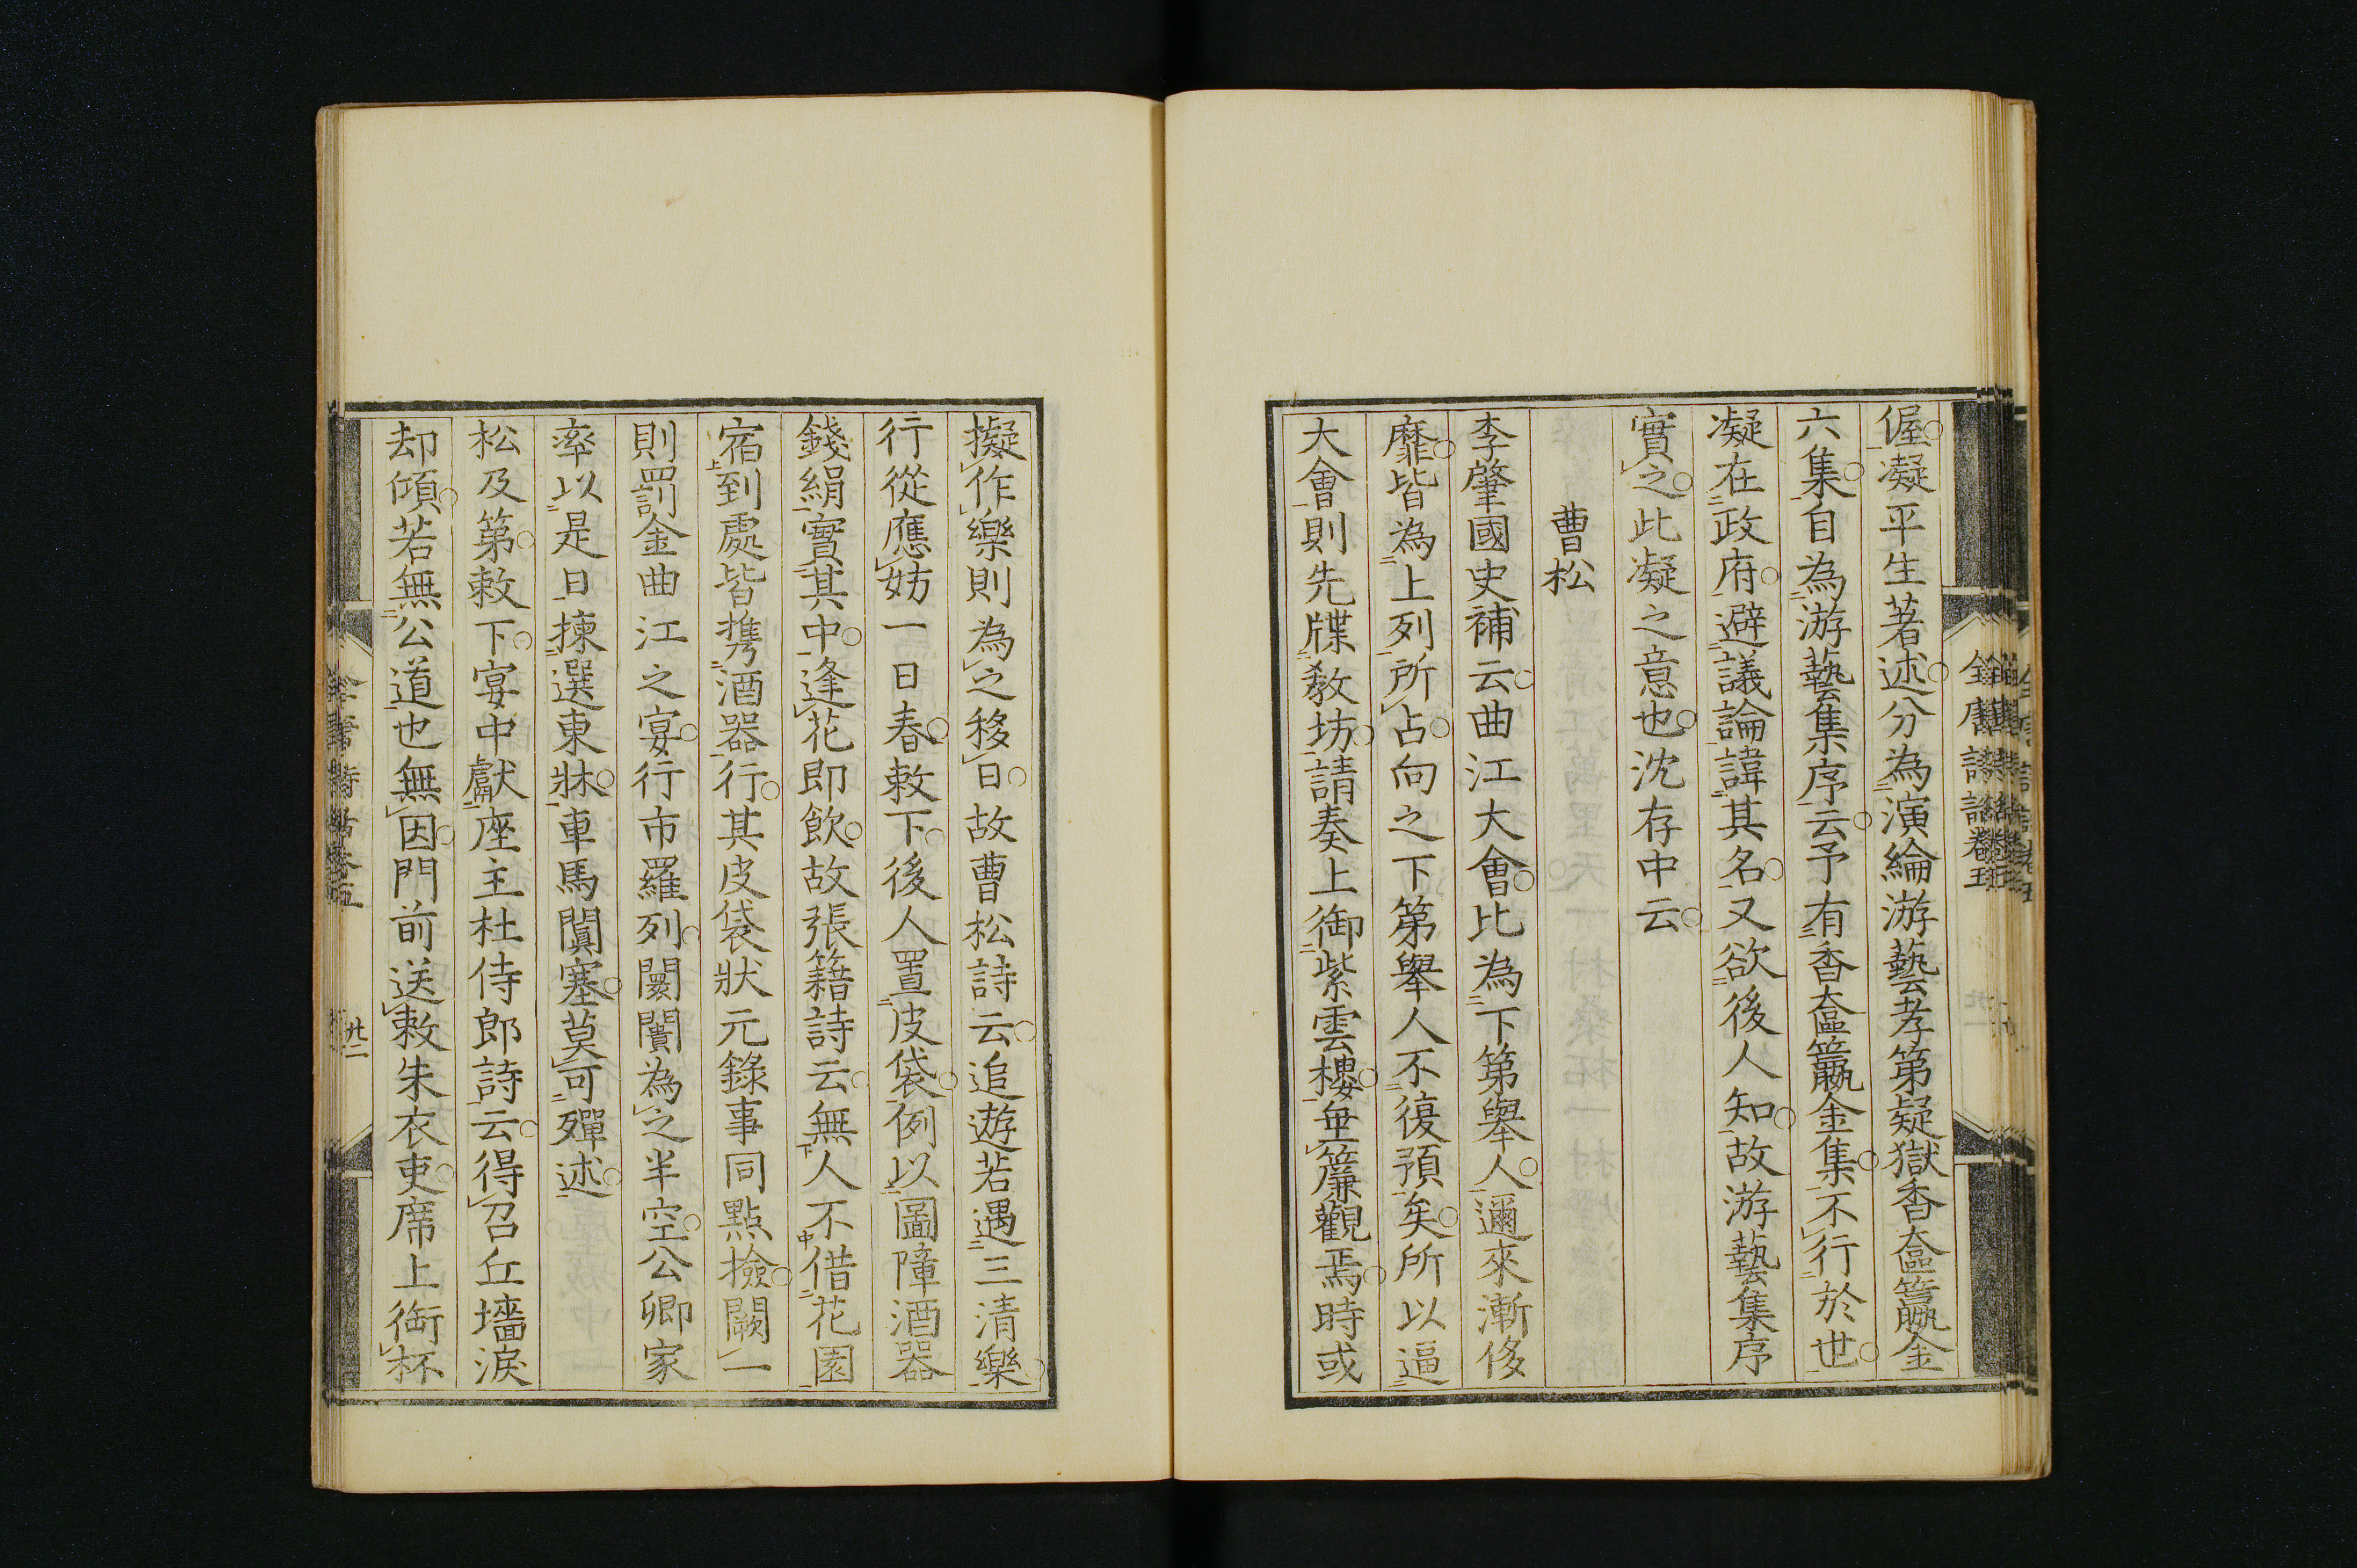 偓凝平生著述分為演綸游藝孝第疑獄香奩籯金
六集自為游藝集序云予有香奩籯金集不行於世
凝在政府避議論諱其名又欲後人知故游藝集序
實之此凝之意也沈存中云
曹松
李肇國史補云曲江大會比為下第舉人邇來漸侈
靡皆為上列所占向之下第舉人不復預矣所以逼
大會則先牒教坊請奏上御紫雲樓垂簾觀焉時或
擬作樂則為之移日故曹松詩云追遊若遇三清樂
行從應妨一日春敕下後人置皮袋例以圖障酒器
錢絹實其中逢花即飲故張籍詩云無人不借花園
宿到處皆携酒器行其皮袋狀元錄事同點撿闕一
則罰金曲江之宴行市羅列闤闠為之半空公卿家
率以是日揀選東牀車馬闐塞莫可殫述
松及第敕下宴中獻座主杜侍郎詩云得召丘墻淚
却傾若無公道也無因門前送敕朱衣吏席上銜杯
全唐詩話卷五
廿二